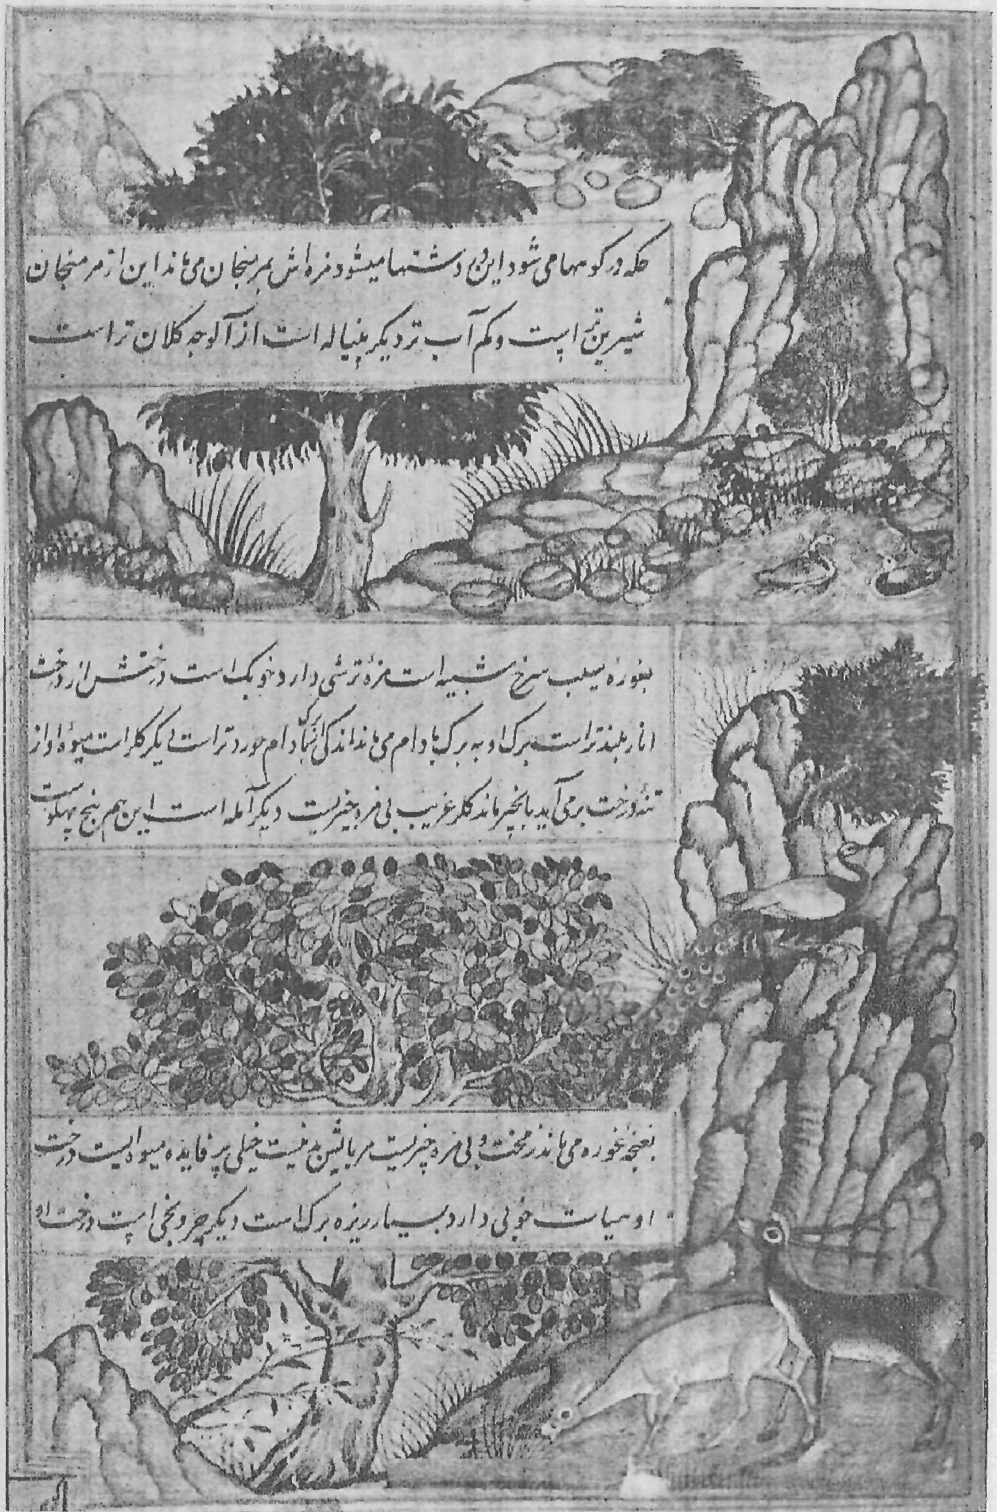 حکه در کوهها می شود این بی دشتها میشود مزه اش بمر منجان می ماند این از مر منجان
شیرین تر است و کم آب تر دیگر پنیاله است از آلوچه کلان تر است
بغوره سیب سرخ شبیه است مزهٔ ترشی دارد خوبک است درختش از درخت
انار بلندتر است برک او به برک بادام می ماند اندکی از بادام خورد تر است دیگر گلر است میوهٔ او از
تنهٔ درخت برمی آید بانجیر ماند گلر غریب بی مزه چیزیست دیگر آمله است این هم پنج پهلوست
بغنچه غوره می ماند زمخت و بی مزه چیزیست مرباش بد نیست خیلی پر فایده میوه ایست درخت
او هیات خوبی دارد بسیار ریزه برک است دیگر چرونجی است درخت او